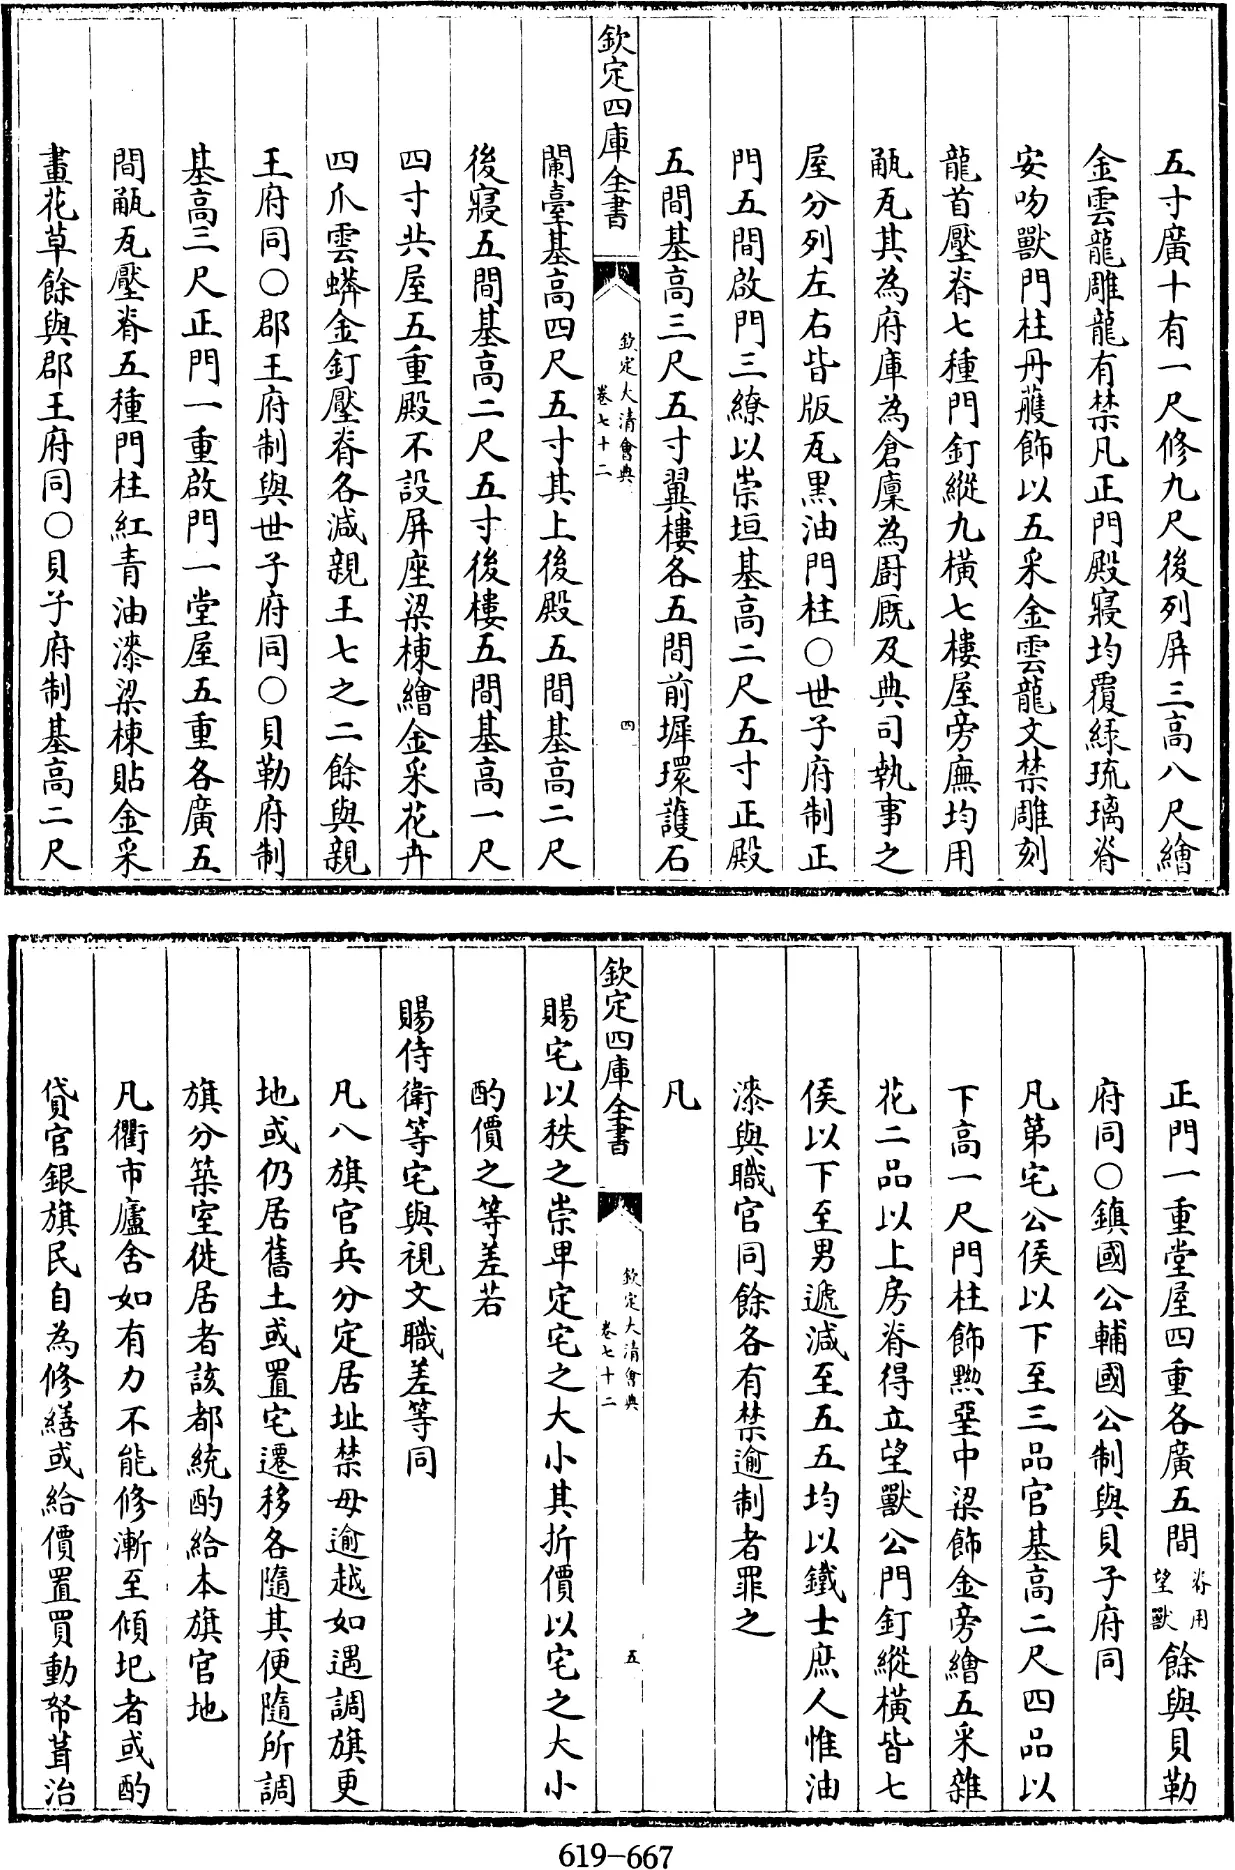 五寸廣十有一尺修九尺後列屏三高八尺繪
金雲龍雕龍有禁凡正門殿寢均覆緑琉璃脊
安吻獸門柱丹雘飾以五采金雲龍文禁雕刻
龍首壓脊七種門釘縱九橫七樓屋旁廡均用
㼧瓦其為府庫為倉廩為廚厩及典司執事之
屋分列左右皆版瓦黒油門柱○世子府制正
門五間啟門三繚以崇垣基高二尺五寸正殿
五間基高三尺五寸翼樓各五間前墀環護石
欽定四庫全書
欽定大清會典
卷七十二
四
闌臺基高四尺五寸其上後殿五間基高二尺
後寢五間基高二尺五寸後樓五間基高一尺
四寸共屋五重殿不設屏座梁棟繪金采花卉
四爪雲蟒金釘壓脊各減親王七之二餘與親
王府同○郡王府制與世子府同○貝勒府制
基高三尺正門一重啟門一堂屋五重各廣五
間㼧瓦壓脊五種門柱紅青油漆梁棟貼金采
畫花草餘與郡王府同○貝子府制基高二尺
正門一重堂屋四重各廣五間脊用望獸餘與貝勒
府同○鎮國公輔國公制與貝子府同
凡第宅公侯以下至三品官基高二尺四品以
下高一尺門柱飾黝堊中梁飾金旁繪五采雜
花二品以上房脊得立望獸公門釘縱橫皆七
侯以下至男遞減至五五均以鐵士庶人惟油
漆與職官同餘各有禁逾制者罪之
凡
欽定四庫全書
欽定大清會典
卷七十二
五
賜宅以秩之崇卑定宅之大小其折價以宅之大小
酌價之等差若
賜侍衛等宅與視文職差等同
凡八旗官兵分定居址禁毋逾越如遇調旗更
地或仍居舊土或置宅遷移各隨其便隨所調
旗分築室徙居者該都統酌給本旗官地
凡衢市廬舍如有力不能修漸至傾圮者或酌
貸官銀旗民自為修繕或給價置買動帑葺治
619-667